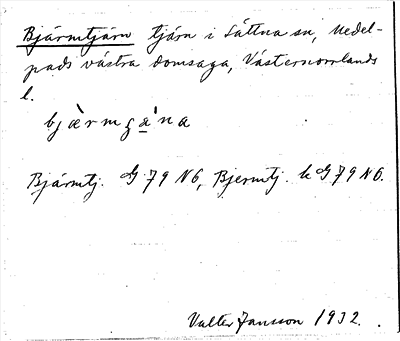 Bjärmtjärn tjärn i Sättna sn, Medel-
pads västra domsaga, Västernorrlands
l.
bjæ̀rmɟa̲ʹna
Bjärmtj. G 79 N6, Bjermtj. k G 79 N6.
Valter Jansson 1932.